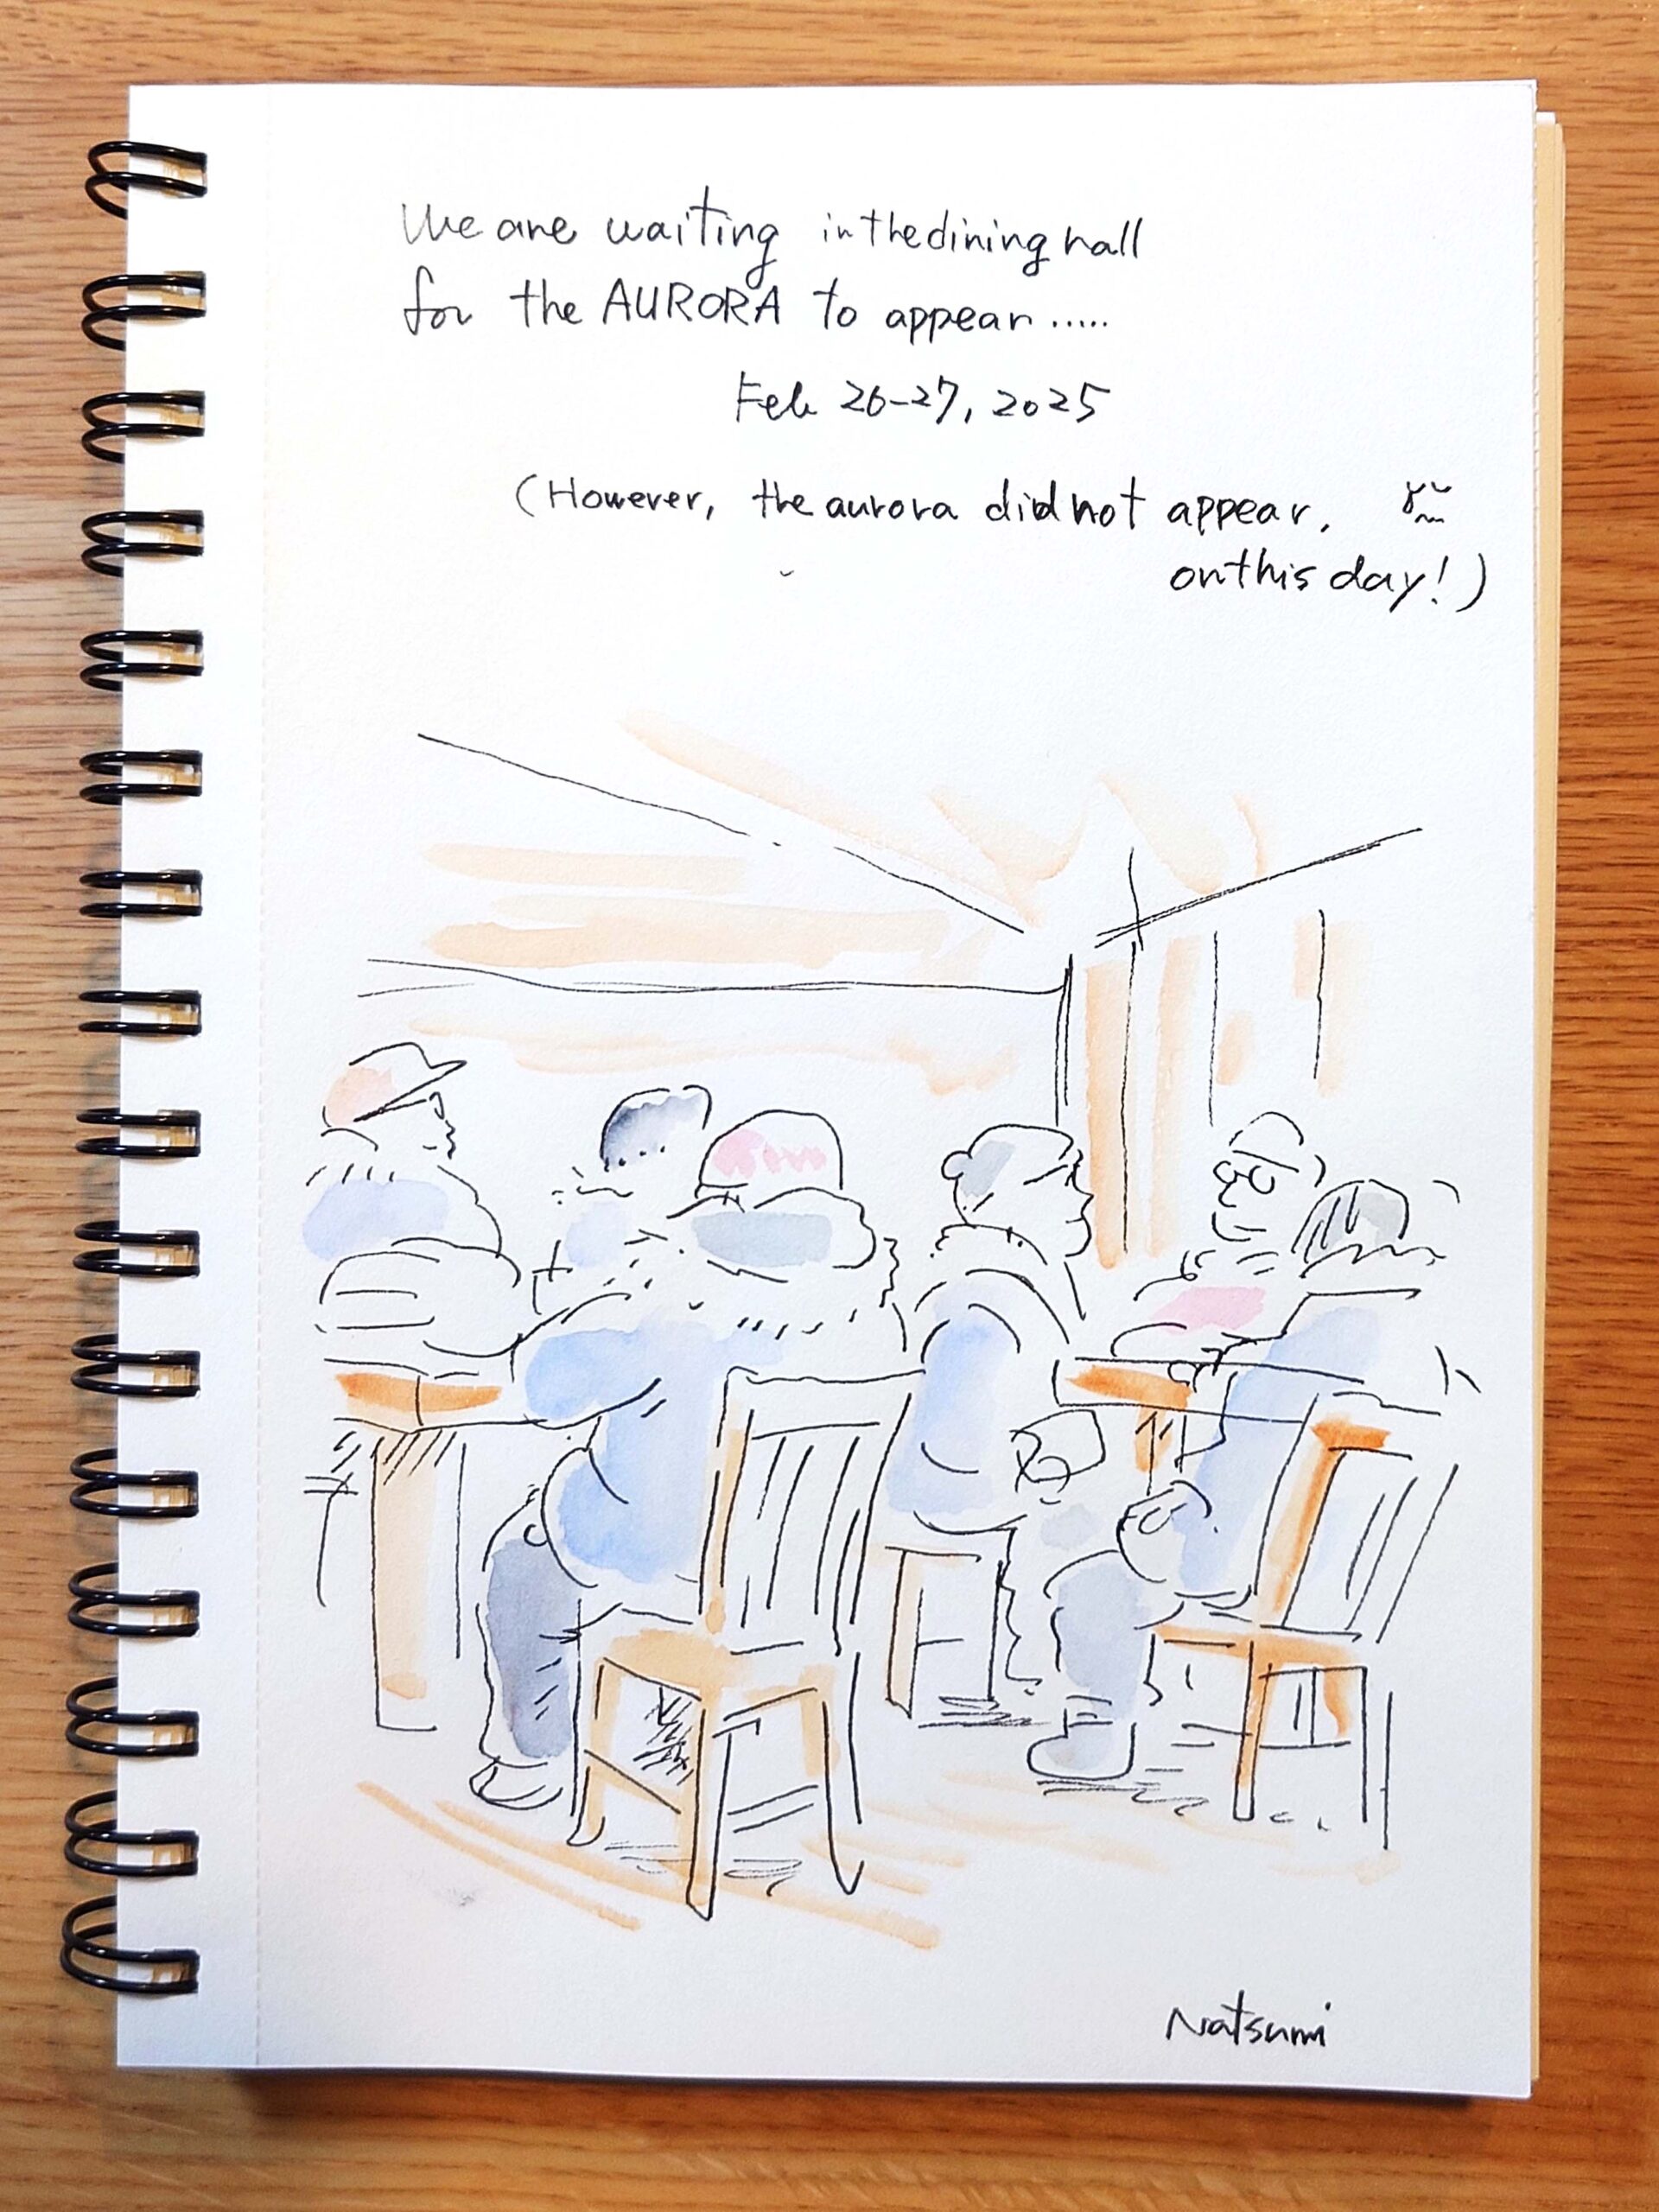 We are waiting in the dining hall
for the AURORA to appear.....
Feb 26-27, 2025
(However, the aurora did not appear.
on this day!)
Natsumi